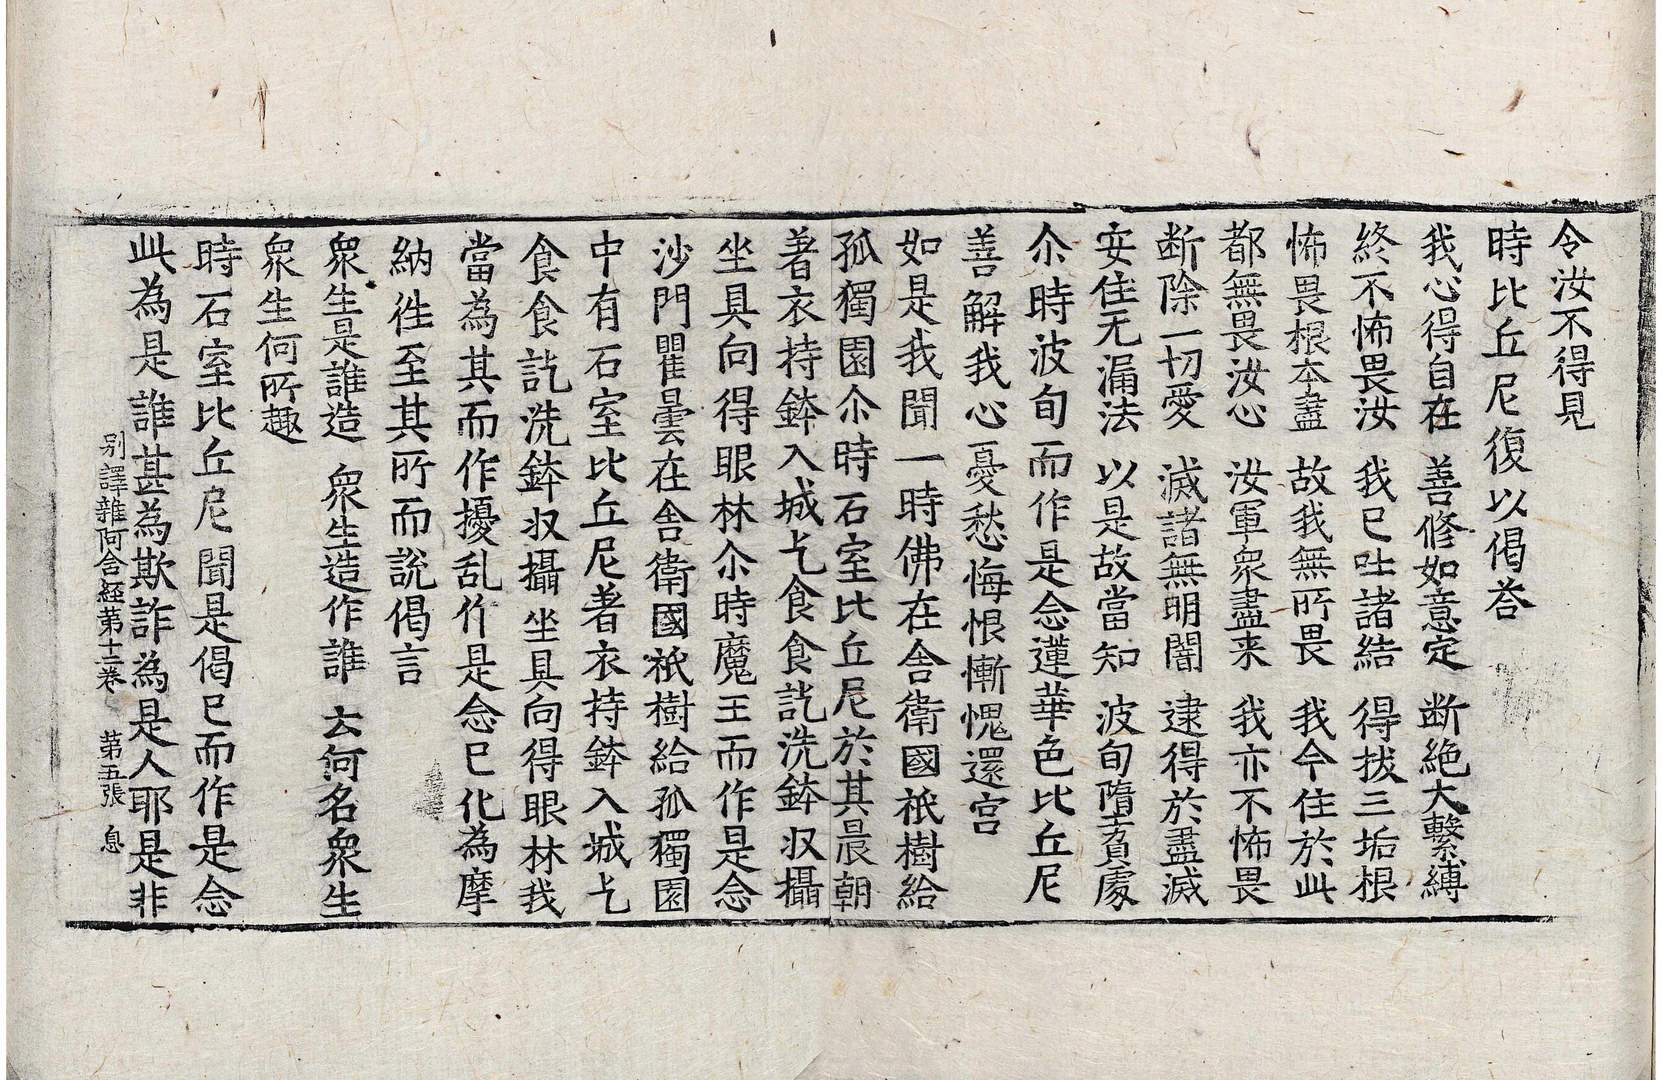 令汝不得見
時比丘尼復以偈荅
我心得自在　善修如意定　断絶大繫縛
終不怖畏汝　我已吐諸結　得拔三垢根
怖畏根本盡　故我無所畏　我今住於此
都無畏汝心　汝軍衆盡来　我亦不怖畏
断除一切愛　滅諸無明闇　逮得於盡滅
安住无漏法　以是故當知　波旬隋負處
尒時波旬而作是念蓮華色比丘尼
善解我心憂愁悔恨慚愧還宮
如是我聞一時佛在舎衛國祇樹給
孤獨園尒時石室比丘尼於其晨朝
著衣持鉢入城乞食食訖洗鉢収攝
坐具向得眼林尒時魔王而作是念
沙門瞿曇在舎衛國祇樹給孤獨園
中有石室比丘尼著衣持鉢入城乞
食食訖洗鉢収攝坐具向得眼林我
當為其而作擾乱作是念已化為摩
納徃至其所而說偈言
衆生是誰造　衆生造作誰　云何名衆生
衆生何所趣
時石室比丘尼聞是偈已而作是念
此為是誰甚為欺詐為是人耶是非
别譯雜阿含経第十二卷　第五張　息